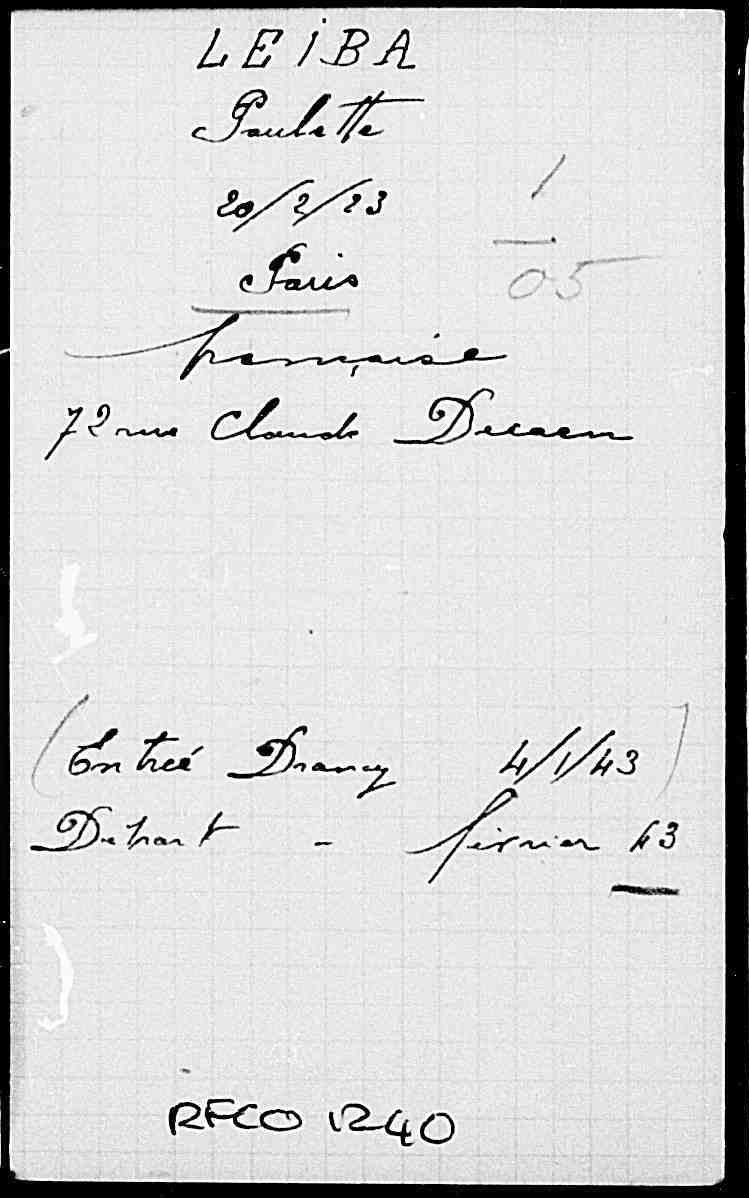 LEIBA
Paulette
20/2/23
1
05
Paris
française
72 rue Claude Decaen
(Entrée Drancy 4/1/43)
Départ - février 43
RECO 1240